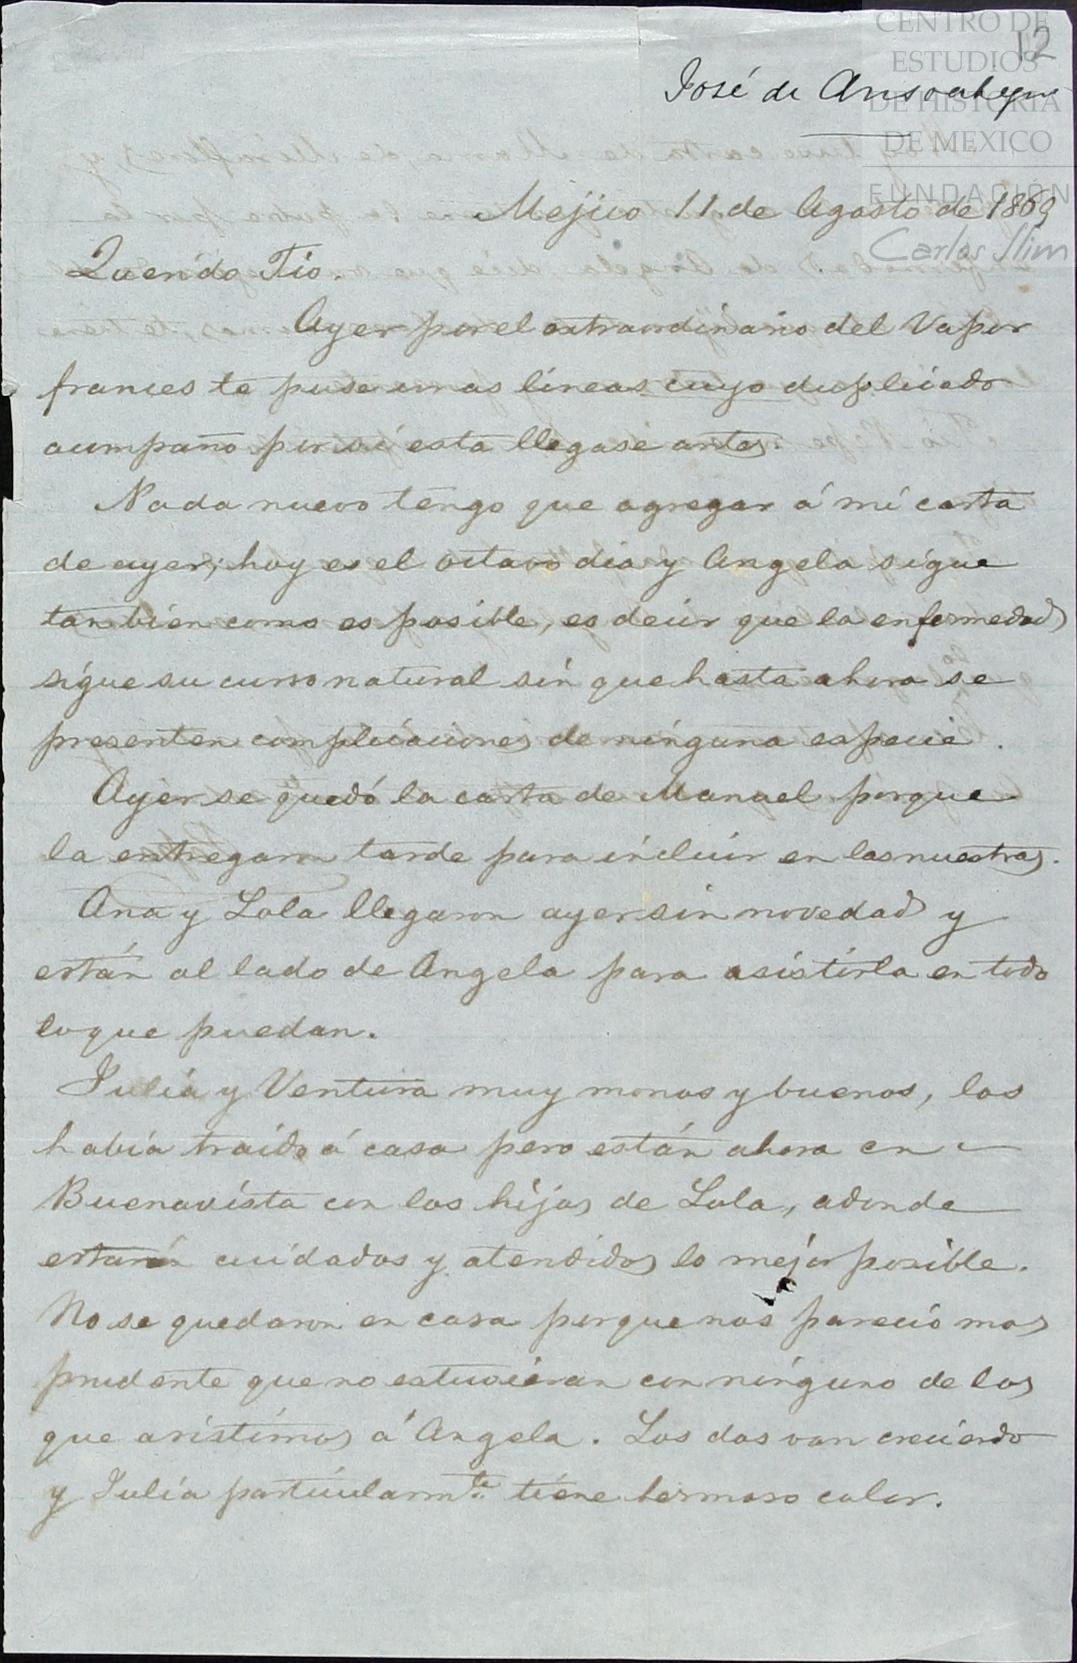 CENTRO DE
ESTUDIOS
DE HISTORIA
DE MEXICO
FUNDACIÓN
Carlos Slim
12
José de Ansoategui
Mejico 11 de Agosto de 1869
Querido Tio.
Ayer por el extraordinario del Vapor
frances te puse unas líneas cuyo duplicado
acompaño por si esta llegase antes.
Nada nuevo tengo que agregar á mi carta
de ayer; hoy es el octavo dia y Angela sigue
tan bien como es posible, es decir que la enfermedad
sigue su curso natural sin que hasta ahora se
presenten complicaciones de ninguna especie.
Ayer se quedó la carta de Manuel porque
la entregaron tarde para incluir en las nuestras.
Ana y Lola llegaron ayer sin novedad y
están al lado de Angela para asistirla en todo
lo que puedan.
Julia y Ventura muy monos y buenos, los
habia traido á casa pero están ahora en
Buenavista con los hijos de Lola, adonde
estarán cuidados y atendidos lo mejor posible.
No se quedaron en casa porque nos pareció mas
prudente que no estuvieran con ninguno de los
que asistimos á Angela. Los dos van creciendo
y Julia particularmte. tiene hermoso color.